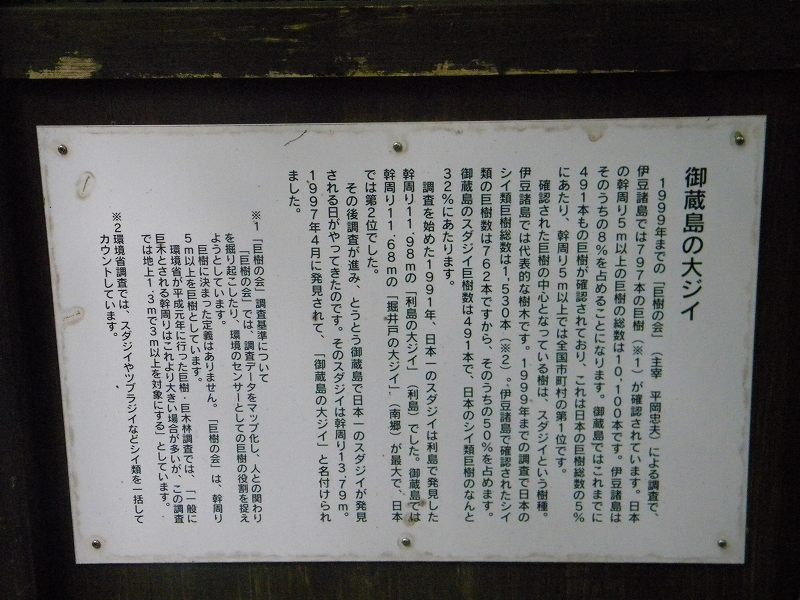 御蔵島の大ジイ
1999年までの「巨樹の会」（主宰　平岡忠夫）による調査で、
伊豆諸島では797本の巨樹（※1）が確認されています。日本
の幹周り5m以上の巨樹の総数は10,100本です。伊豆諸島は
そのうちの8％を占めることになります。御蔵島ではこれまでに
491本もの巨樹が確認されており、これは日本の巨樹総数の5％
にあたり、幹周り5m以上では全国市町村の第1位です。
確認された巨樹の中心となっている樹は、スダジイという樹種。
伊豆諸島では代表的な樹木です。1999年までの調査で日本の
シイ類巨樹総数は1,530本（※2）。伊豆諸島で確認されたシイ
類の巨樹数は762本ですから、そのうちの50％を占めます。
御蔵島のスダジイ巨樹数は491本で、日本のシイ類巨樹のなんと
32％にあたります。
調査を始めた1991年、日本一のスダジイは利島で発見した
幹周り11.98mの「利島の大ジイ」（利島）でした。御蔵島では
幹周り11.68mの「掘井戸の大ジイ」（南郷）が最大で、日本
では第2位でした。
その後調査が進み、とうとう御蔵島で日本一のスダジイが発見
される日がやってきたのです。そのスダジイは幹周り13.79m。
1997年4月に発見されて、「御蔵島の大ジイ」と名付けられ
ました。
※1「巨樹の会」調査基準について
「巨樹の会」では、調査データをマップ化し、人との関わり
を掘り起こしたり、環境のセンサーとしての巨樹の役割を捉え
ようとしています。
巨樹に決まった定義はありません。「巨樹の会」は、幹周り
5m以上を巨樹としています。
環境省が平成元年に行った巨樹・巨木林調査では、「一般に
巨木とされる幹周りはこれより大きい場合が多いが、この調査
では地上1.3mで3m以上を対象にする」としています。
※2環境省調査では、スダジイやツブラジイなどシイ類を一括して
カウントしています。